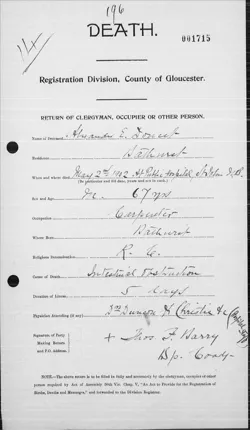 196
14
DEATH.
001715
Registration Division, County of Gloucester.
RETURN OF CLERGYMAN, OCCUPIER OR OTHER PERSON.
Name of Deceased Alexander E.
Residence Bathurst
When and where died May 2nd 1942 Hospital, St John N.B.
Sex and Age M. 67 yrs
Occupation Carpenter
Where Born Bathurst
Religious Denomination R. C.
Cause of Death Intestinal Obstruction
Duration of Illness 5 days
Physician Attending (if any) Drs Duncan & Christie &c
Signature of Party Making Return and P.O. Address + Thos. F. Barry
Bp.
NOTE.—The above is to be filled in fully and accurately by the clergyman, occupier or other
person required by Act of Assembly 50th Vic. Chap. V, "An Act to Provide for the Registration of
Births, Deaths and Marriages," and forwarded to the Division Registrar.